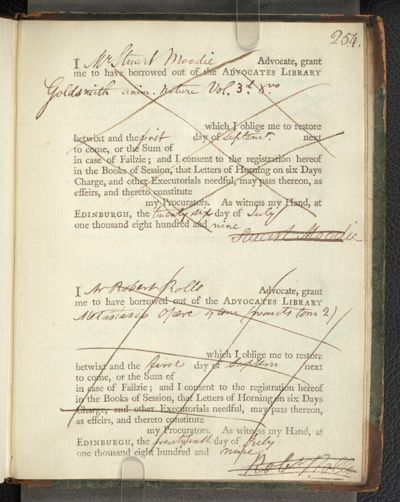 254.
I Mr Stuart Moodie Advocate, grant
me to have borrowed out of the ADVOCATES LIBRARY
Goldsmith anim. Nature Vol. 3d 8vo
which I oblige me to restore
betwixt and the first day of Septemr. next
to come, or the Sum of
in case of Failzie; and I consent to the registration hereof
in the Books of Session, that Letters of Horning on six Days
Charge, and other Executorials needful, may pass thereon, as
effeirs, and thereto constitute
my Procurators. As witness my Hand, at
EDINBURGH, the twenty six day of July
one thousand eight hundred and nine
Stuart Moodie
I Mr Robert Rollo Advocate, grant
me to have borrowed out of the ADVOCATES LIBRARY
Metastasio Opere tom (wants tom 2)
which I oblige me to restore
betwixt and the first day of Septem next
to come, or the Sum of
in case of Failzie; and I consent to the registration hereof
in the Books of Session, that Letters of Horning on six Days
Charge, and other Executorials needful, may pass thereon,
as effeirs, and thereto constitute
my Procurators. As witness my Hand, at
EDINBURGH, the twenty sixth day of July
one thousand eight hundred and nine
Robt Rollo